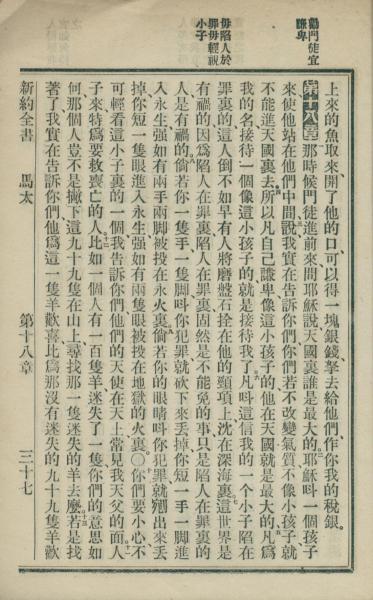 勸門徒宜
謙卑
毋陷人於
罪毋輕視
小子
上來的魚取來、開了他的口、可以得一塊銀錢、拏去給他們作你我的稅銀。
第十八章 那時候門徒進前來問耶穌說、天國裏誰是最大的。耶穌呌一個孩子
來使他站在他們中間、說、我實在告訴你們、你們若不改變氣質、不像小孩子、就
不能進天國裏去。所以凡自己謙卑像這小孩子的、他在天國就是最大的。凡爲
我的名接待一個像這小孩子的、就是接待我了。凡呌這信我的一個小子陷在
罪裏的、這人倒不如早有人將磨盤石拴在他的頸項上、沈在深海裏。這世界是
有禍的、因爲陷人在罪裏、陷人在罪裏固然是不能免的事、只是陷人在罪裏的
人是有禍的。倘若你一隻手、一隻脚、呌你犯罪、就砍下來丟掉、你短一手一脚進
入永生、强如有兩手兩脚被投在永火裏。倘若你的眼睛呌你犯罪、就剜出來丟
掉、你短一隻眼進入永生、强如有兩隻眼被投在地獄的火裏。〇你們要小心、不
可輕看這小子裏的一個、我告訴你們、他們的天使在天上常見我天父的面。人
子來特爲要救喪亡的人。比如一個人有一百隻羊、迷失了一隻、你們的意思如
何、那個人豈不是撇下這九十九隻在山上、尋找那一隻迷失的羊去麽。若是找
著了、我實在告訴你們、他爲這一隻羊歡喜、比爲那沒有迷失的九十九隻羊歡
新約全書 馬太 第十八章 三十七